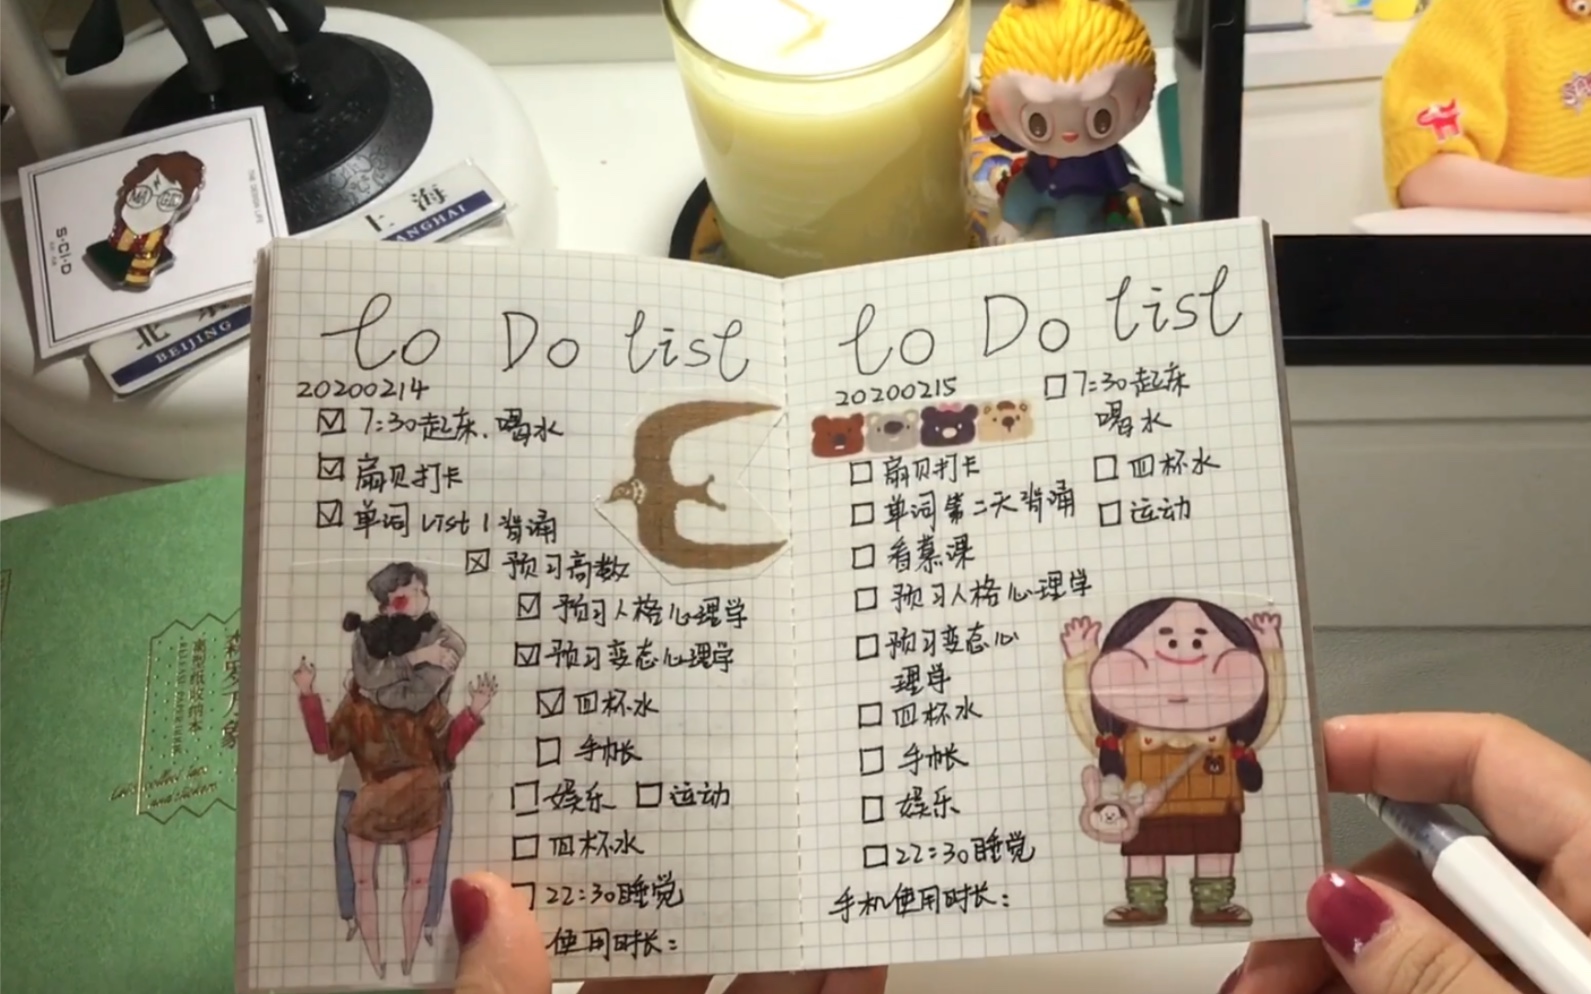 S·C·I·D
上海
ANGHAI
北京
BEIJING
to Do list
20200214
☑ 7:30起床、喝水
☑ 扇贝打卡
☑ 单词 list 1 背诵
☒ 预习高数
☑ 预习人格心理学
☑ 预习变态心理学
☑ 四杯水
□ 手帐
□ 娱乐 □ 运动
□ 四杯水
22:30睡觉
使用时长:
to Do list
20200215
□ 7:30起床
喝水
□ 扇贝打卡
□ 四杯水
□ 单词第二天背诵
□ 运动
□ 看慕课
□ 预习人格心理学
□ 预习变态心
理学
□ 四杯水
□ 手帐
□ 娱乐
□ 22:30睡觉
手机使用时长:
森罗万象
离型纸胶纳本